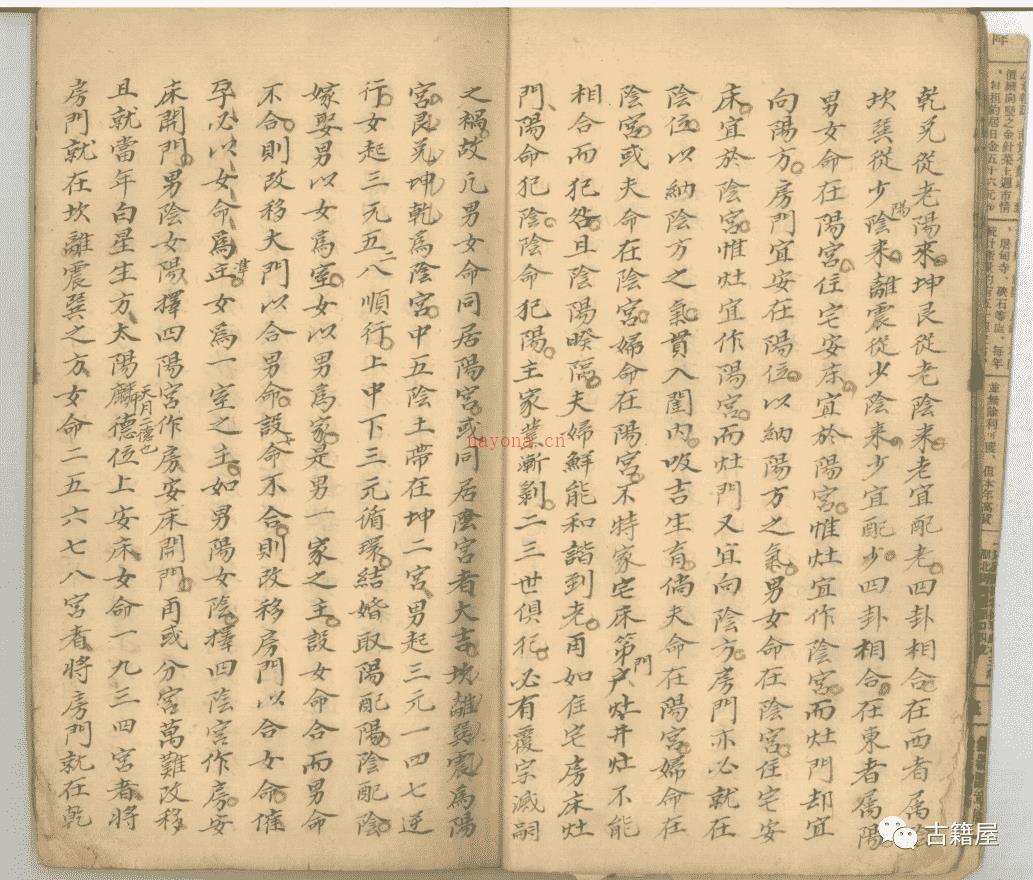 乾兌從老陽來坤艮從老陰來老宜配老四卦相合在西者屬
坎巽從少陰來離震從少陰來少宜配少四卦相合在東者屬陽
陽
男女命在陽宮住宅安床宜於陽宮惟灶宜作陰宮而灶門却宜
向陽方房門宜安在陽位以納陽方之氣男女命在陰宮住宅安
床宜於陰宮惟灶宜作陽宮而灶門又宜向陰方房門亦必就在
陰位以納陰方之氣貫入閨内吸吉生育倘夫命在陽宮婦命在
陰宮或夫命在陰宮婦命在陽宮不特家宅床第户灶井灶不能
門
相合而犯咎且陰陽暌隔夫婦鮮能和諧到老再如住宅房床灶
門陽命犯陰陰命犯陽主家業漸剝二三世俱犯必有覆宗滅嗣
之禍故凡男女命同居陽宮或同居陰宮者大吉坎離巽震為陽
宮艮兌坤乾為陰宮中五陰土帶在坤二宮男起三元一四七逆
行女起三元五二八順行上中下三元循環結婚取陽配陽陰配陰
嫁娶男以女為室女以男為家是男一家之主設女命合而男命
不合則改移大門以合男命設命不合則改移房門以合女命催
女
孕必以女命為主女為一室之主如男陽女陰擇四陰宮作房安
準
床開門男陰女陽擇四陽宮作房安床開門再或分宮萬難改移
且就當年白星生方太陽麟德位上安床女命一九三四宮者將
天月二德也
房門就在坎離震巽之方女命二五六七八宮者將房門就在乾
nayona.cn
古籍屋